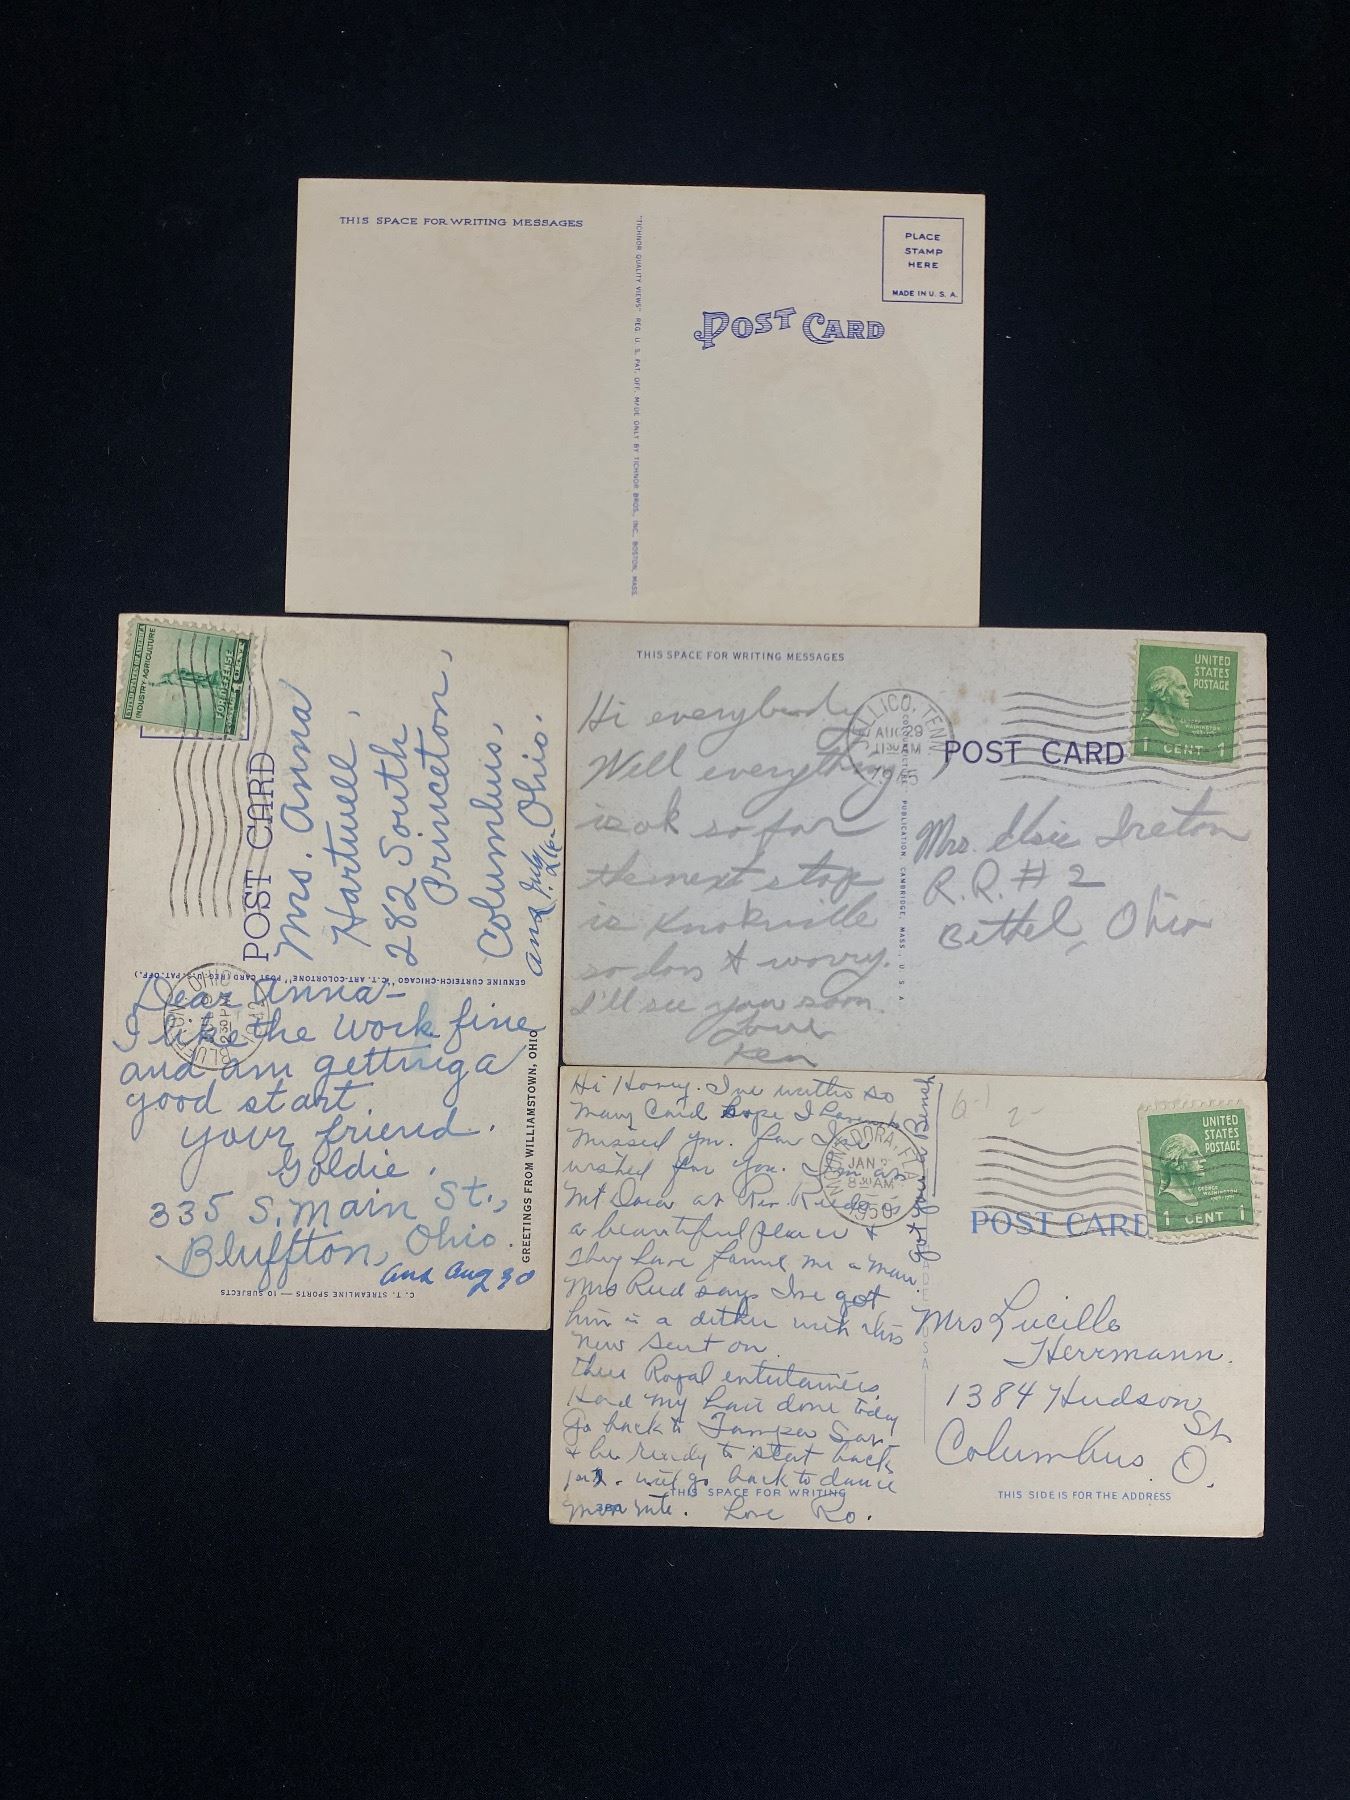 THIS SPACE FOR WRITING MESSAGES
"TICHNOR QUALITY VIEWS" REG. U. S. PAT. OFF. MADE ONLY BY TICHNOR BROS., INC., BOSTON, MASS.
PLACE
STAMP
HERE
MADE IN U. S. A.
POST CARD
UNITED STATES OF AMERICA
INDUSTRY AGRICULTURE
FOR DEFENSE
POST CARD
Mrs. Anna
Hartwell,
282 South
Princeton,
Columbus,
Ohio.
and July
GENUINE CURTEICH-CHICAGO "C. T. ART-COLORTONE" POST CARD (REG. U. S. PAT. OFF.)
BLUFFTON OHIO
2 30 PM
1942
Dear Anna-
I like the work fine
and am getting a
good start.
your friend.
Goldie.
335 S. Main St.,
Bluffton, Ohio.
and Aug 30
GREETINGS FROM WILLIAMSTOWN, OHIO
C. T. STREAMLINE SPORTS — 10 SUBJECTS
THIS SPACE FOR WRITING MESSAGES
Hi everybody
Well everything
is ok so far
the next stop
is Knoxville
so don't worry.
I'll see you soon.
Love
Ken
CALLICO, TENN
AUG 29
11 30 AM
PUBLICATION, CAMBRIDGE, MASS., U. S. A.
POST CARD
UNITED
STATES
POSTAGE
GEORGE
WASHINGTON
1 CENT 1
Mrs. Elsie Ireton
R.R. # 2
Bethel, Ohio
Hi Honey. I've written so
Many Card hope I haven't
Missed you. for I've
wished for you. I'm at
Mt Dora at Rev. Reeds
a beautiful place &
They have found me a man.
Mrs Reed says I've got
him in a dither with this
New Suit on
these Royal entertainers.
Had My hair done today
Go back to Tampa Sat.
& be ready to start back
will go back to dance
Mon nite. Love Ro.
Got you a Bench
DORA, FLA.
JAN
8 30 AM
1950
6-1
2-
POST CARD
UNITED
STATES
POSTAGE
GEORGE
WASHINGTON
1 CENT 1
MADE USA
Mrs Lucille
Herrmann.
1384 Hudson
St
Columbus O.
THIS SPACE FOR WRITING
THIS SIDE IS FOR THE ADDRESS
380